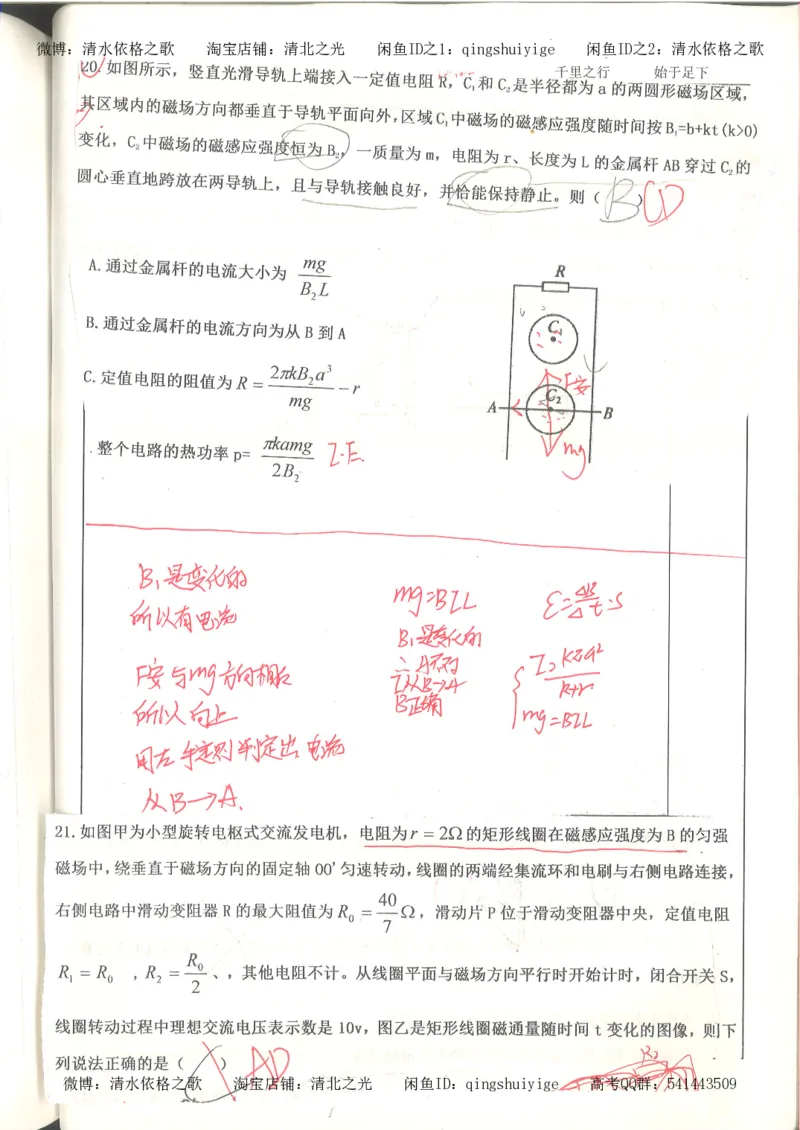 微博：清水依格之歌 淘宝店铺：清北之光 闲鱼ID之1：qingshuiyige 闲鱼ID之2：清水依格之歌
千里之行 始于足下
20. 如图所示，竖直光滑导轨上端接入一定值电阻R，C₁和C₂是半径都为a的两圆形磁场区域，
其区域内的磁场方向都垂直于导轨平面向外，区域C₁中磁场的磁感应强度随时间按B₁=b+kt(k>0)
变化，C₂中磁场的磁感应强度恒为B₂，一质量为m，电阻为r、长度为L的金属杆AB穿过C₂的
圆心垂直地跨放在两导轨上，且与导轨接触良好，并恰能保持静止。则（ B ）CD
A.通过金属杆的电流大小为 mg/B₂L
B.通过金属杆的电流方向为从B到A
C.定值电阻的阻值为R = 2πkB₂a³/mg − r
整个电路的热功率p= πkamg/2B₂ I·E.
R
C₁
F安
C₂
A
B
mg
B₁是变化的
所以有电流
F安与mg方向相反
所以向上
用左手定则判定出电流
从B→A.
mg=BIL
B₁是变化的
∴A不对
I从B→A
B正确
ε=ΔB/Δt·S
I= kπa²/R+r
mg=BIL
21.如图甲为小型旋转电枢式交流发电机，电阻为r = 2Ω的矩形线圈在磁感应强度为B的匀强
磁场中，绕垂直于磁场方向的固定轴OO'匀速转动，线圈的两端经集流环和电刷与右侧电路连接，
右侧电路中滑动变阻器R的最大阻值为R₀ = 40/7 Ω，滑动片P位于滑动变阻器中央，定值电阻
R₁ = R₀ ，R₂ = R₀/2 、，其他电阻不计。从线圈平面与磁场方向平行时开始计时，闭合开关S，
线圈转动过程中理想交流电压表示数是10v，图乙是矩形线圈磁通量随时间t变化的图像，则下
列说法正确的是（ ）AD
微博：清水依格之歌 淘宝店铺：清北之光 闲鱼ID：qingshuiyige 高考QQ群：541443509